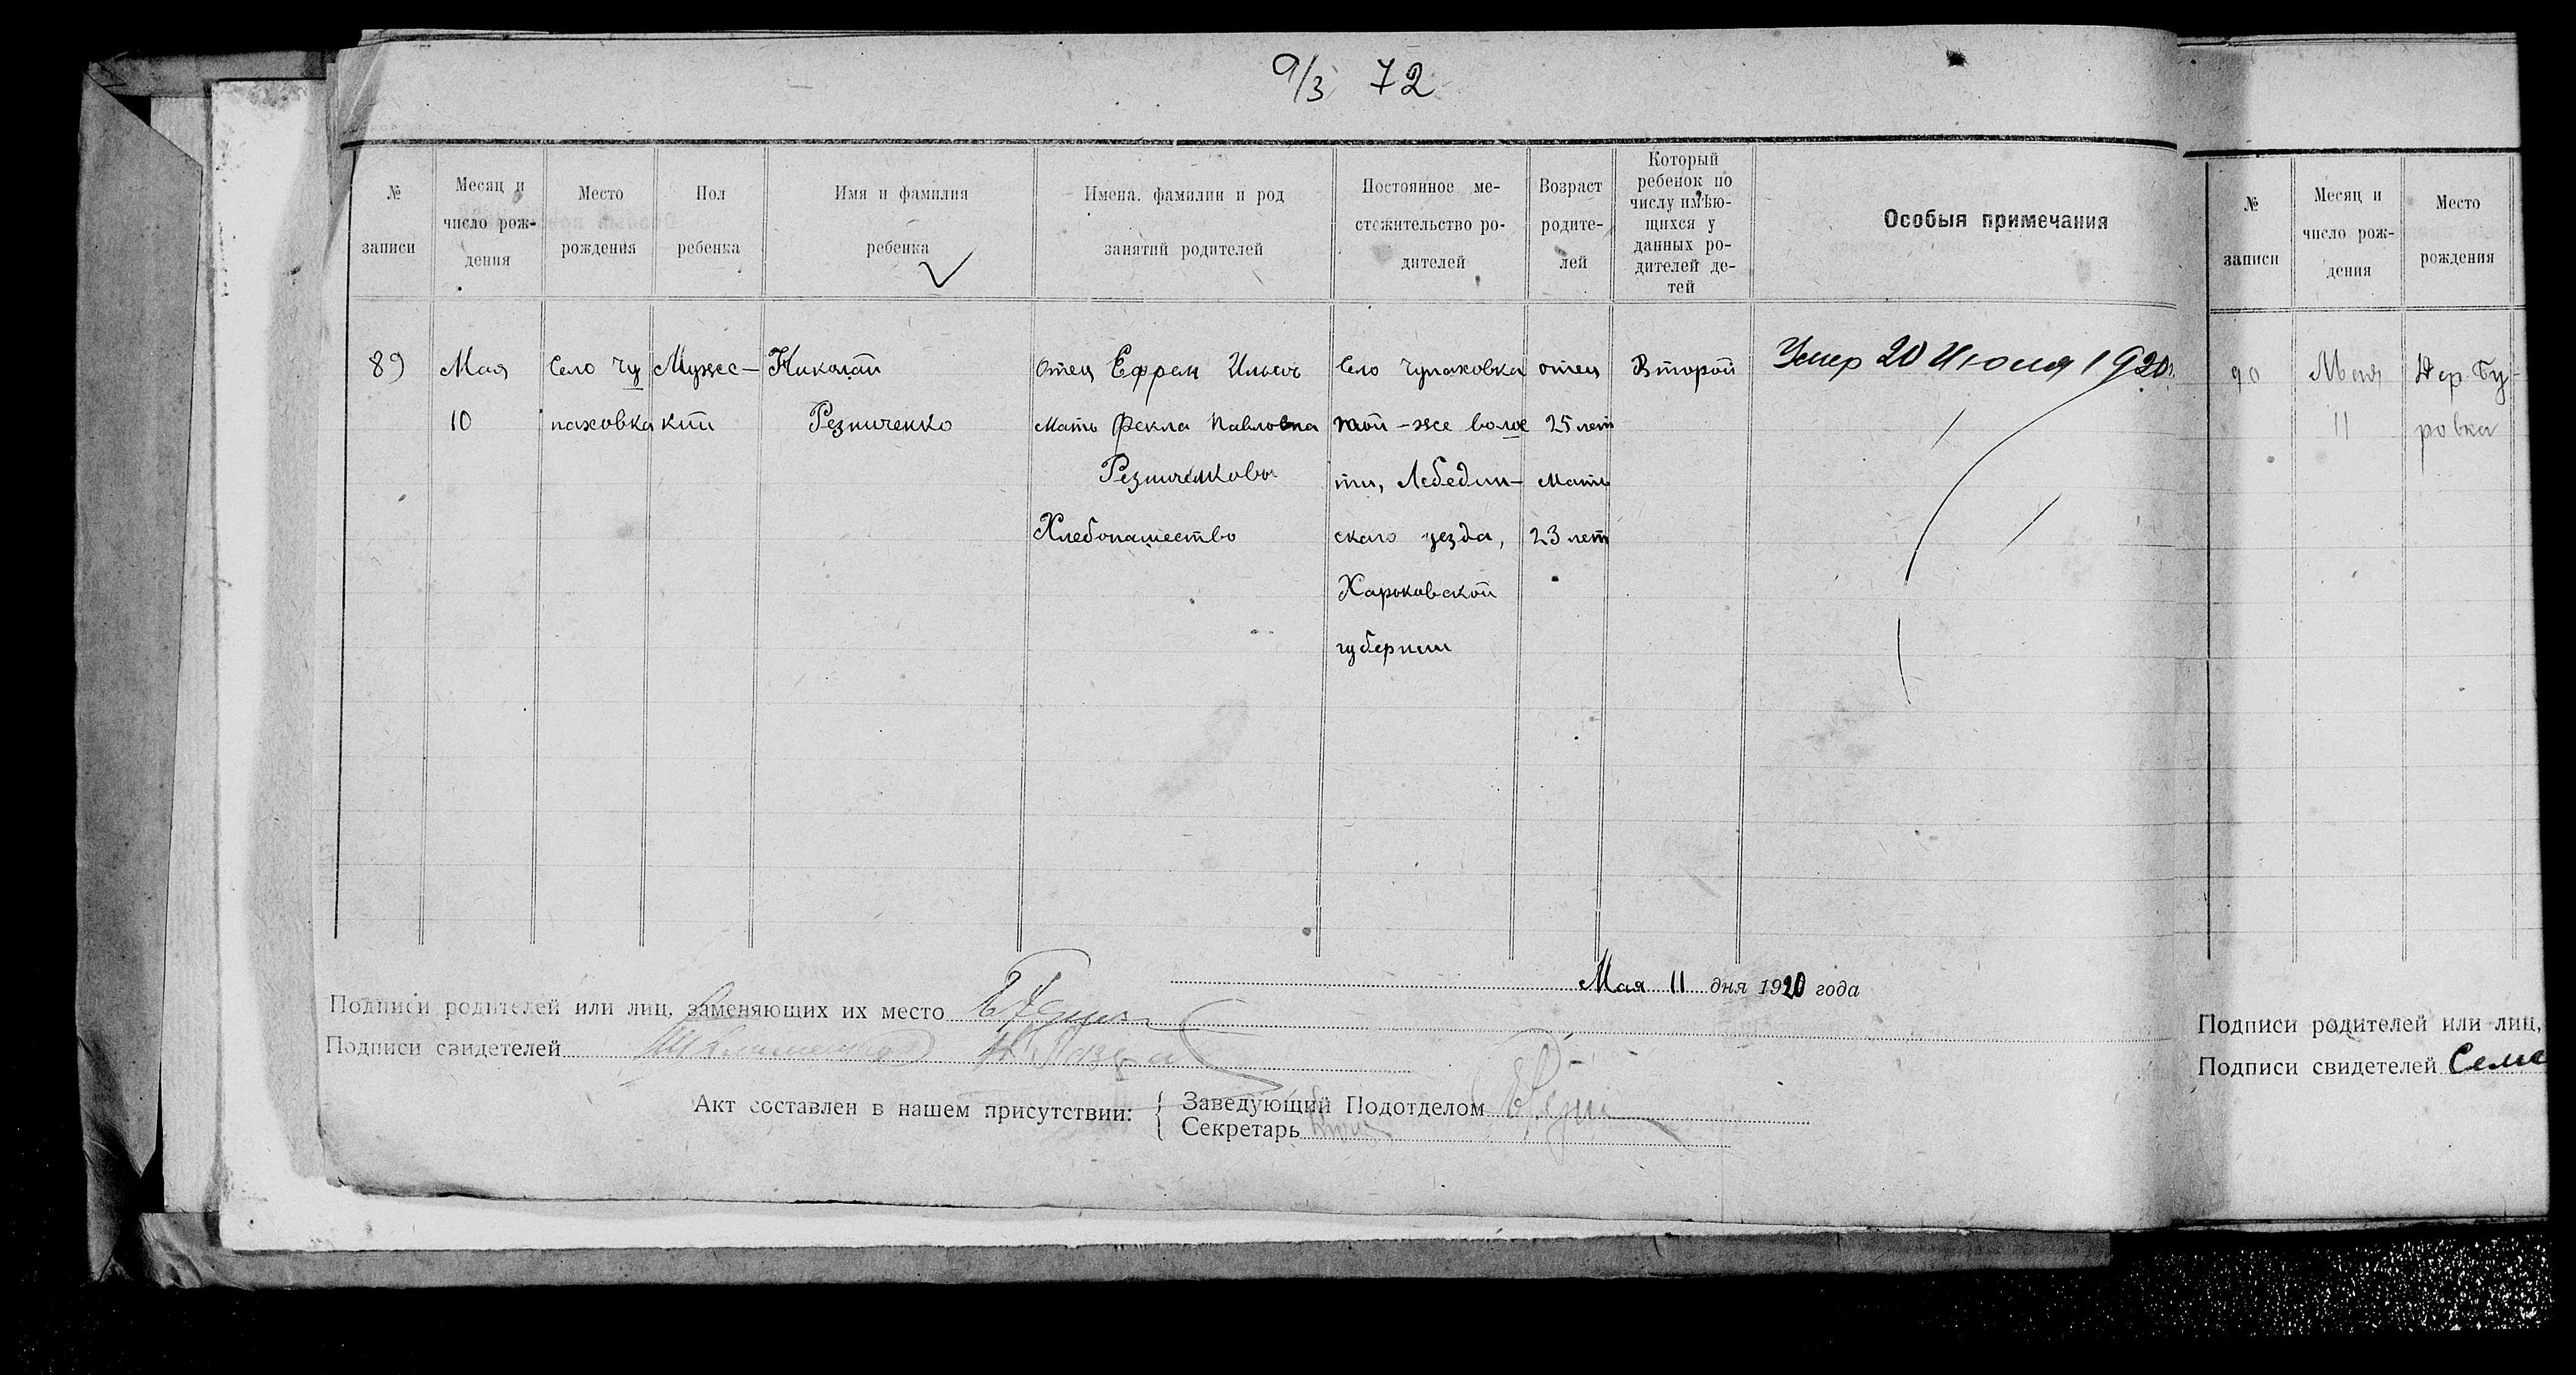 9/3 72
№ записи
Месяц и число рож-дения
Место рождения
Пол ребенка
Имя и фамилия ребенка
Имена, фамилии и род занятий родителей
Постоянное ме-стожительство ро-дителей
Возраст родите-лей
Который ребенок по числу имѣю-щихся у данных ро-дителей де-тей
Особыя примечания
89
Мая
10
Село Чу
паховка
Мужес-
кий
Николай
Резниченко
Отец Ефрем Ильич
Мать Фекла Павловна
Резниченковы
Хлебопашество
Село Чупаховка
той-же волос
ти, Лебедин-
скаго уезда,
Харьковской
губернии
отец
25 лет
мать
23 лет
Второй
Умер 20 Июля 1920г.
Мая 11 дня 1920 года
Подписи родителей или лиц, заменяющих их место
Подписи свидетелей
Акт составлен в нашем присутствии:
Заведующий Подотделом
Секретарь
№ записи
Месяц и число рож-дения
Место рождения
90
Мая
11
Дер. Бу-
ровка
Подписи родителей или лиц,
Подписи свидетелей Семе